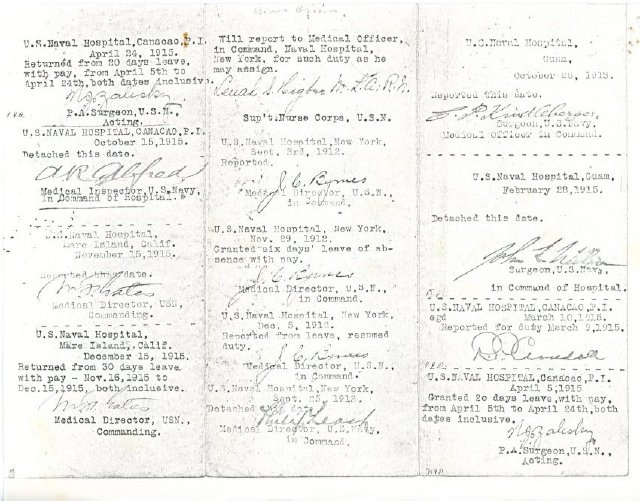 U.S.Naval Hospital,Canacao,P.I.
April 24, 1915.
Returned from 20 days leave,
with pay, from April 5th to
April 24th,both dates inclusive.
P.A.Surgeon,U.S.N.,
Acting.
U.S.NAVAL HOSPITAL,CANACAO,P.I.
October 15,1915.
Detached this date.
Medical Inspector,U.S.Navy,
in Command of Hospital.
U.S.Naval Hospital,
Mare Island, Calif.
November 15,1915.
Reported this date.
Medical Director, USN,
Commanding.
U.S.Naval Hospital,
Mare Island, Calif.
December 15, 1915.
Returned from 30 days leave
with pay - Nov.16,1915 to
Dec.15,1915, both inclusive.
Medical Director, USN.
Commanding.
Will report to Medical Officer,
in Command, Naval Hospital,
New York, for such duty as he
may assign.
Lenah S. Higbee
Sup't.Nurse Corps, U.S.N.
U.S.Naval Hospital,New York,
Sept. 3rd, 1912.
Reported.
J. C. Byrnes
Medical Director, U.S.N.,
in Command.
U.S.Naval Hospital, New York,
Nov. 29, 1912.
Granted six days' leave of ab-
sence with pay.
J. C. Byrnes
Medical Director, U.S.N.,
in Command.
U.S.Naval Hospital, New York,
Dec. 5, 1912.
Reported from leave, resumed
duty.
J. C. Byrnes
Medical Director, U.S.N.,
in Command.
U.S.Naval Hospital,New York,
Sept. 25, 1913.
Detached this date.
Medical Director, U.S.Navy,
in Command.
Naval Hospital,
Guam,
October 28, 1913.
Reported this date.
Surgeon,U.S.Navy,
Medical Officer in Command.
U.S.Naval Hospital,Guam,
February 28,1915.
Detached this date.
Surgeon,U.S.Navy,
in Command of Hospital.
U.S.NAVAL HOSPITAL,CANACAO,P.I.
March 10,1915.
Reported for duty March 9,1915.
U.S.NAVAL HOSPITAL,Canacao,P.I.
April 5,1915
Granted 20 days leave,with pay,
from April 5th to April 24th,both
dates inclusive.
P.A.Surgeon,U.S.N.,
Acting.